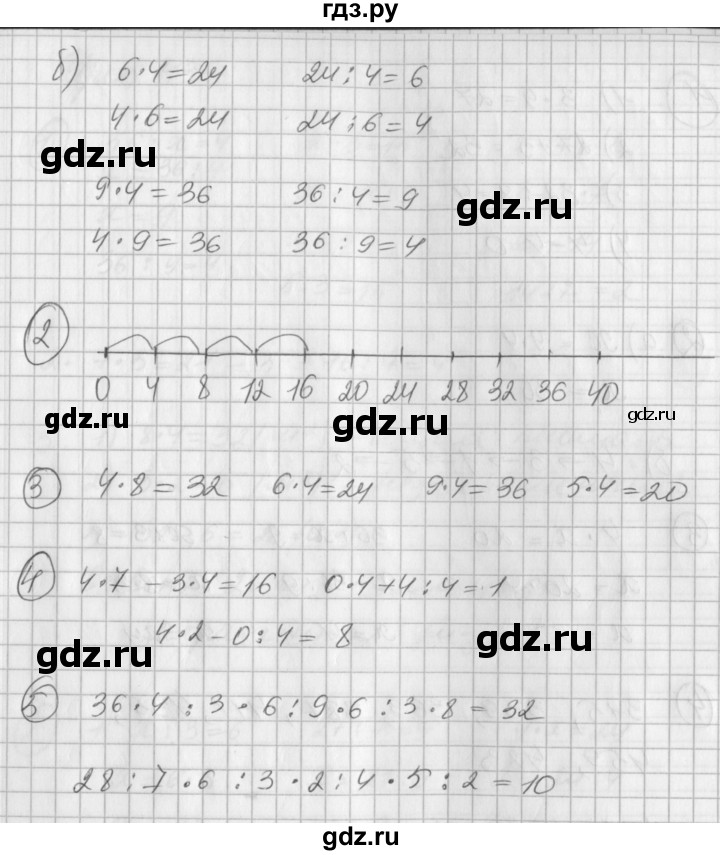 гдз.ру
б) 6·4=24 24:4=6
4·6=24 24:6=4
gdz.ru
9·4=36 36:4=9
gdz.ru
4·9=36 36:9=4
2
0 4 8 12 16 20 24 28 32 36 40
gdz.ru gdz.ru gdz.ru
3 4·8=32 6·4=24 9·4=36 5·4=20
4 4·7-3·4=16 0·4+4:4=1
4·2-0:4=8
gdz.ru gdz.ru
5 36·4:3·6:9·6:3·8=32
28:7·6:3·2:4·5:2=10
gdz.ru gdz.ru
gdz.ru